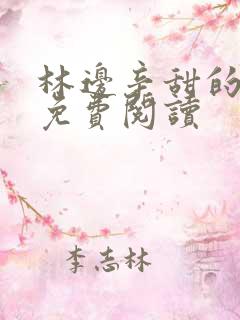 林邊辛甜的
免費閱讀
李志林